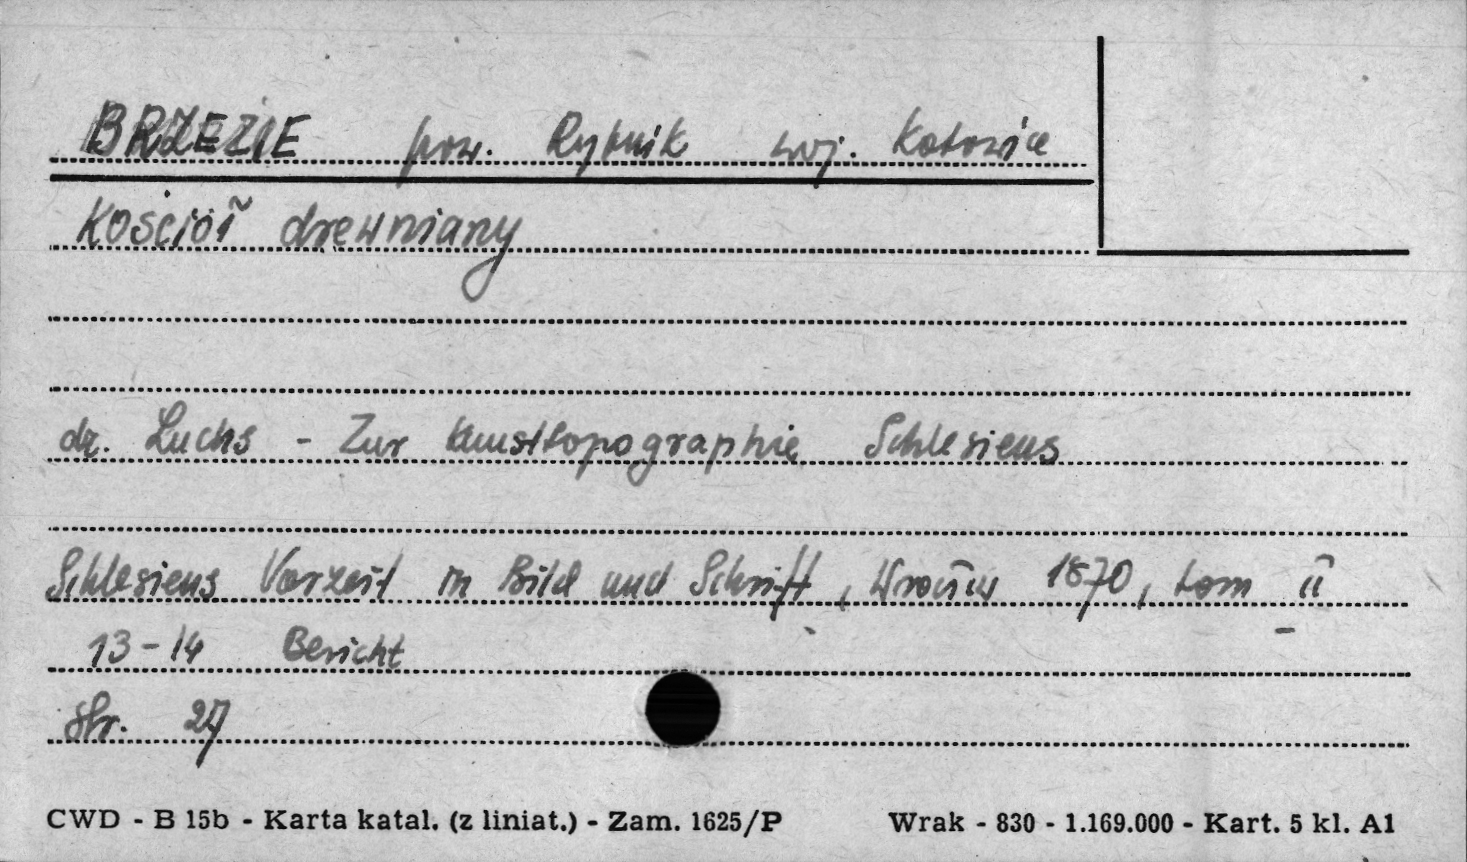 BRZEZIE pow. Rybnik woj. Katowice
Kościół drewniany
dr. Luchs - Zur Kunsttopographie Schlesiens
Schlesiens Vorzeit in Bild und Schrift, Wrocław 1870, tom II
13-14 Bericht
Str. 27
CWD - B 15b - Karta katal. (z liniat.) - Zam. 1625/P Wrak - 830 - 1.169.000 - Kart. 5 kl. A1